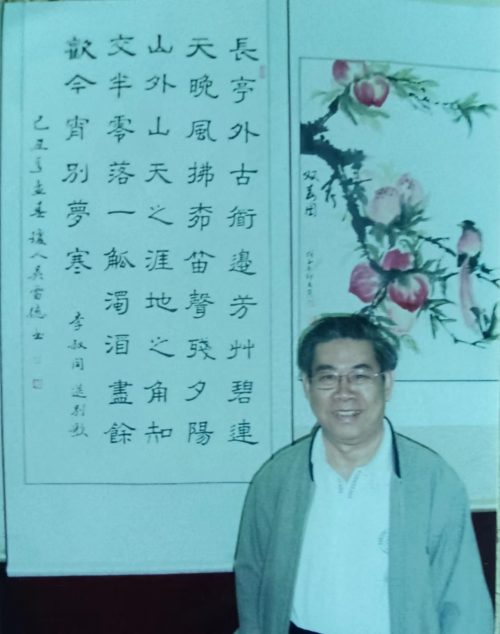 長亭外古衜邊芳艸碧連
天晚風拂桺笛聲殘夕陽
山外山天之涯地之角知
交半零落一觚濁酒盡餘
歡今宵別夢寒
李叔同送別歌
己丑年孟春